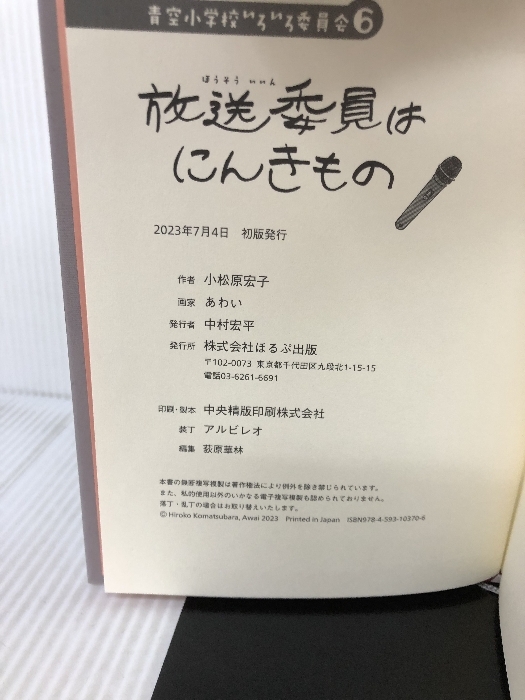 青空小学校いろいろ委員会6
ほうそう いいん
放送委員は
にんきもの
2023年7月4日 初版発行
作者 小松原宏子
画家 あわい
発行者 中村宏平
発行所 株式会社ほるぷ出版
〒102-0073 東京都千代田区九段北1-15-15
電話03-6261-6691
印刷・製本 中央精版印刷株式会社
装丁 アルビレオ
編集 荻原華林
本書の無断複写複製は著作権法により例外を除き禁じられています。
また、私的使用以外のいかなる電子複写複製も認められておりません。
落丁・乱丁の場合はお取り替えいたします。
© Hiroko Komatsubara, Awai 2023 Printed in Japan ISBN978-4-593-10370-6